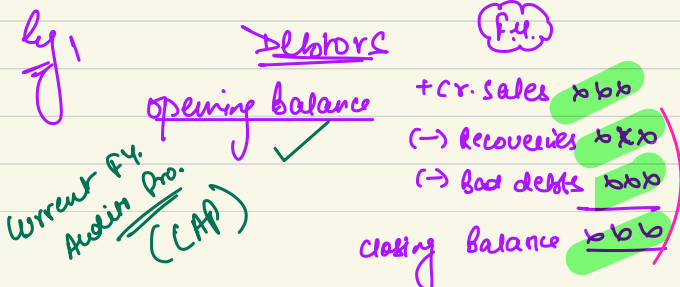 Eg 1
Debtors
F.Y.
Opening Balance
+ Cr. Sales xxx
(-) Recoveries xxx
(-) Bad debts xxx
Closing Balance xxx
Current F.Y.
Audit Pro.
(CAP)